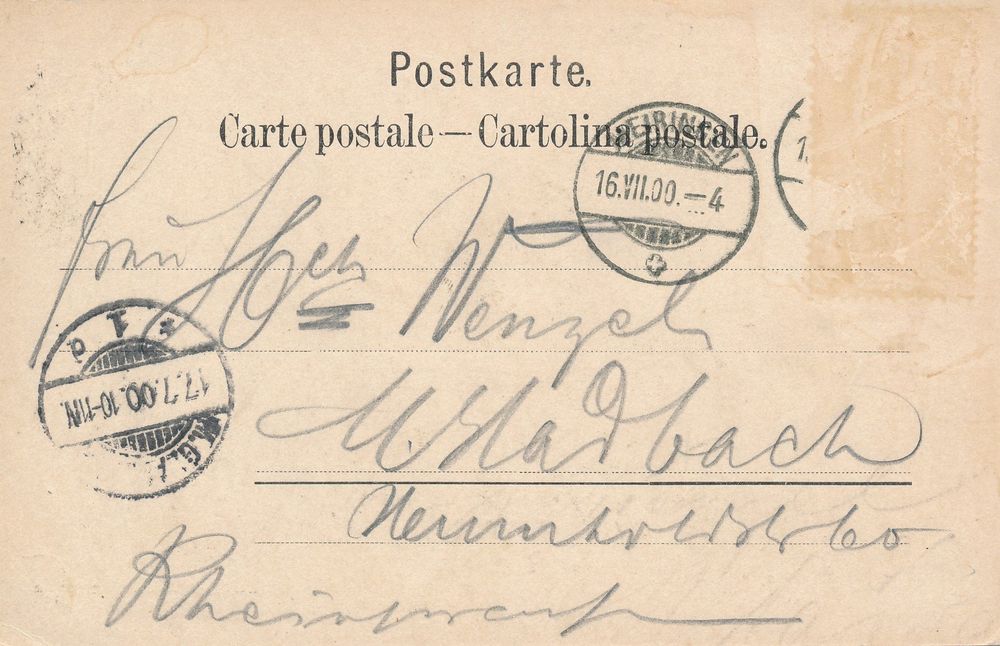 Postkarte.
Carte postale — Cartolina postale.
MEIRINGEN
16.VII.00.—4
1
Frau Hch Wenzel
* 1 d
17.7.00.10-11N.
M.GL
M. Gladbach
60
Rheinpreuß